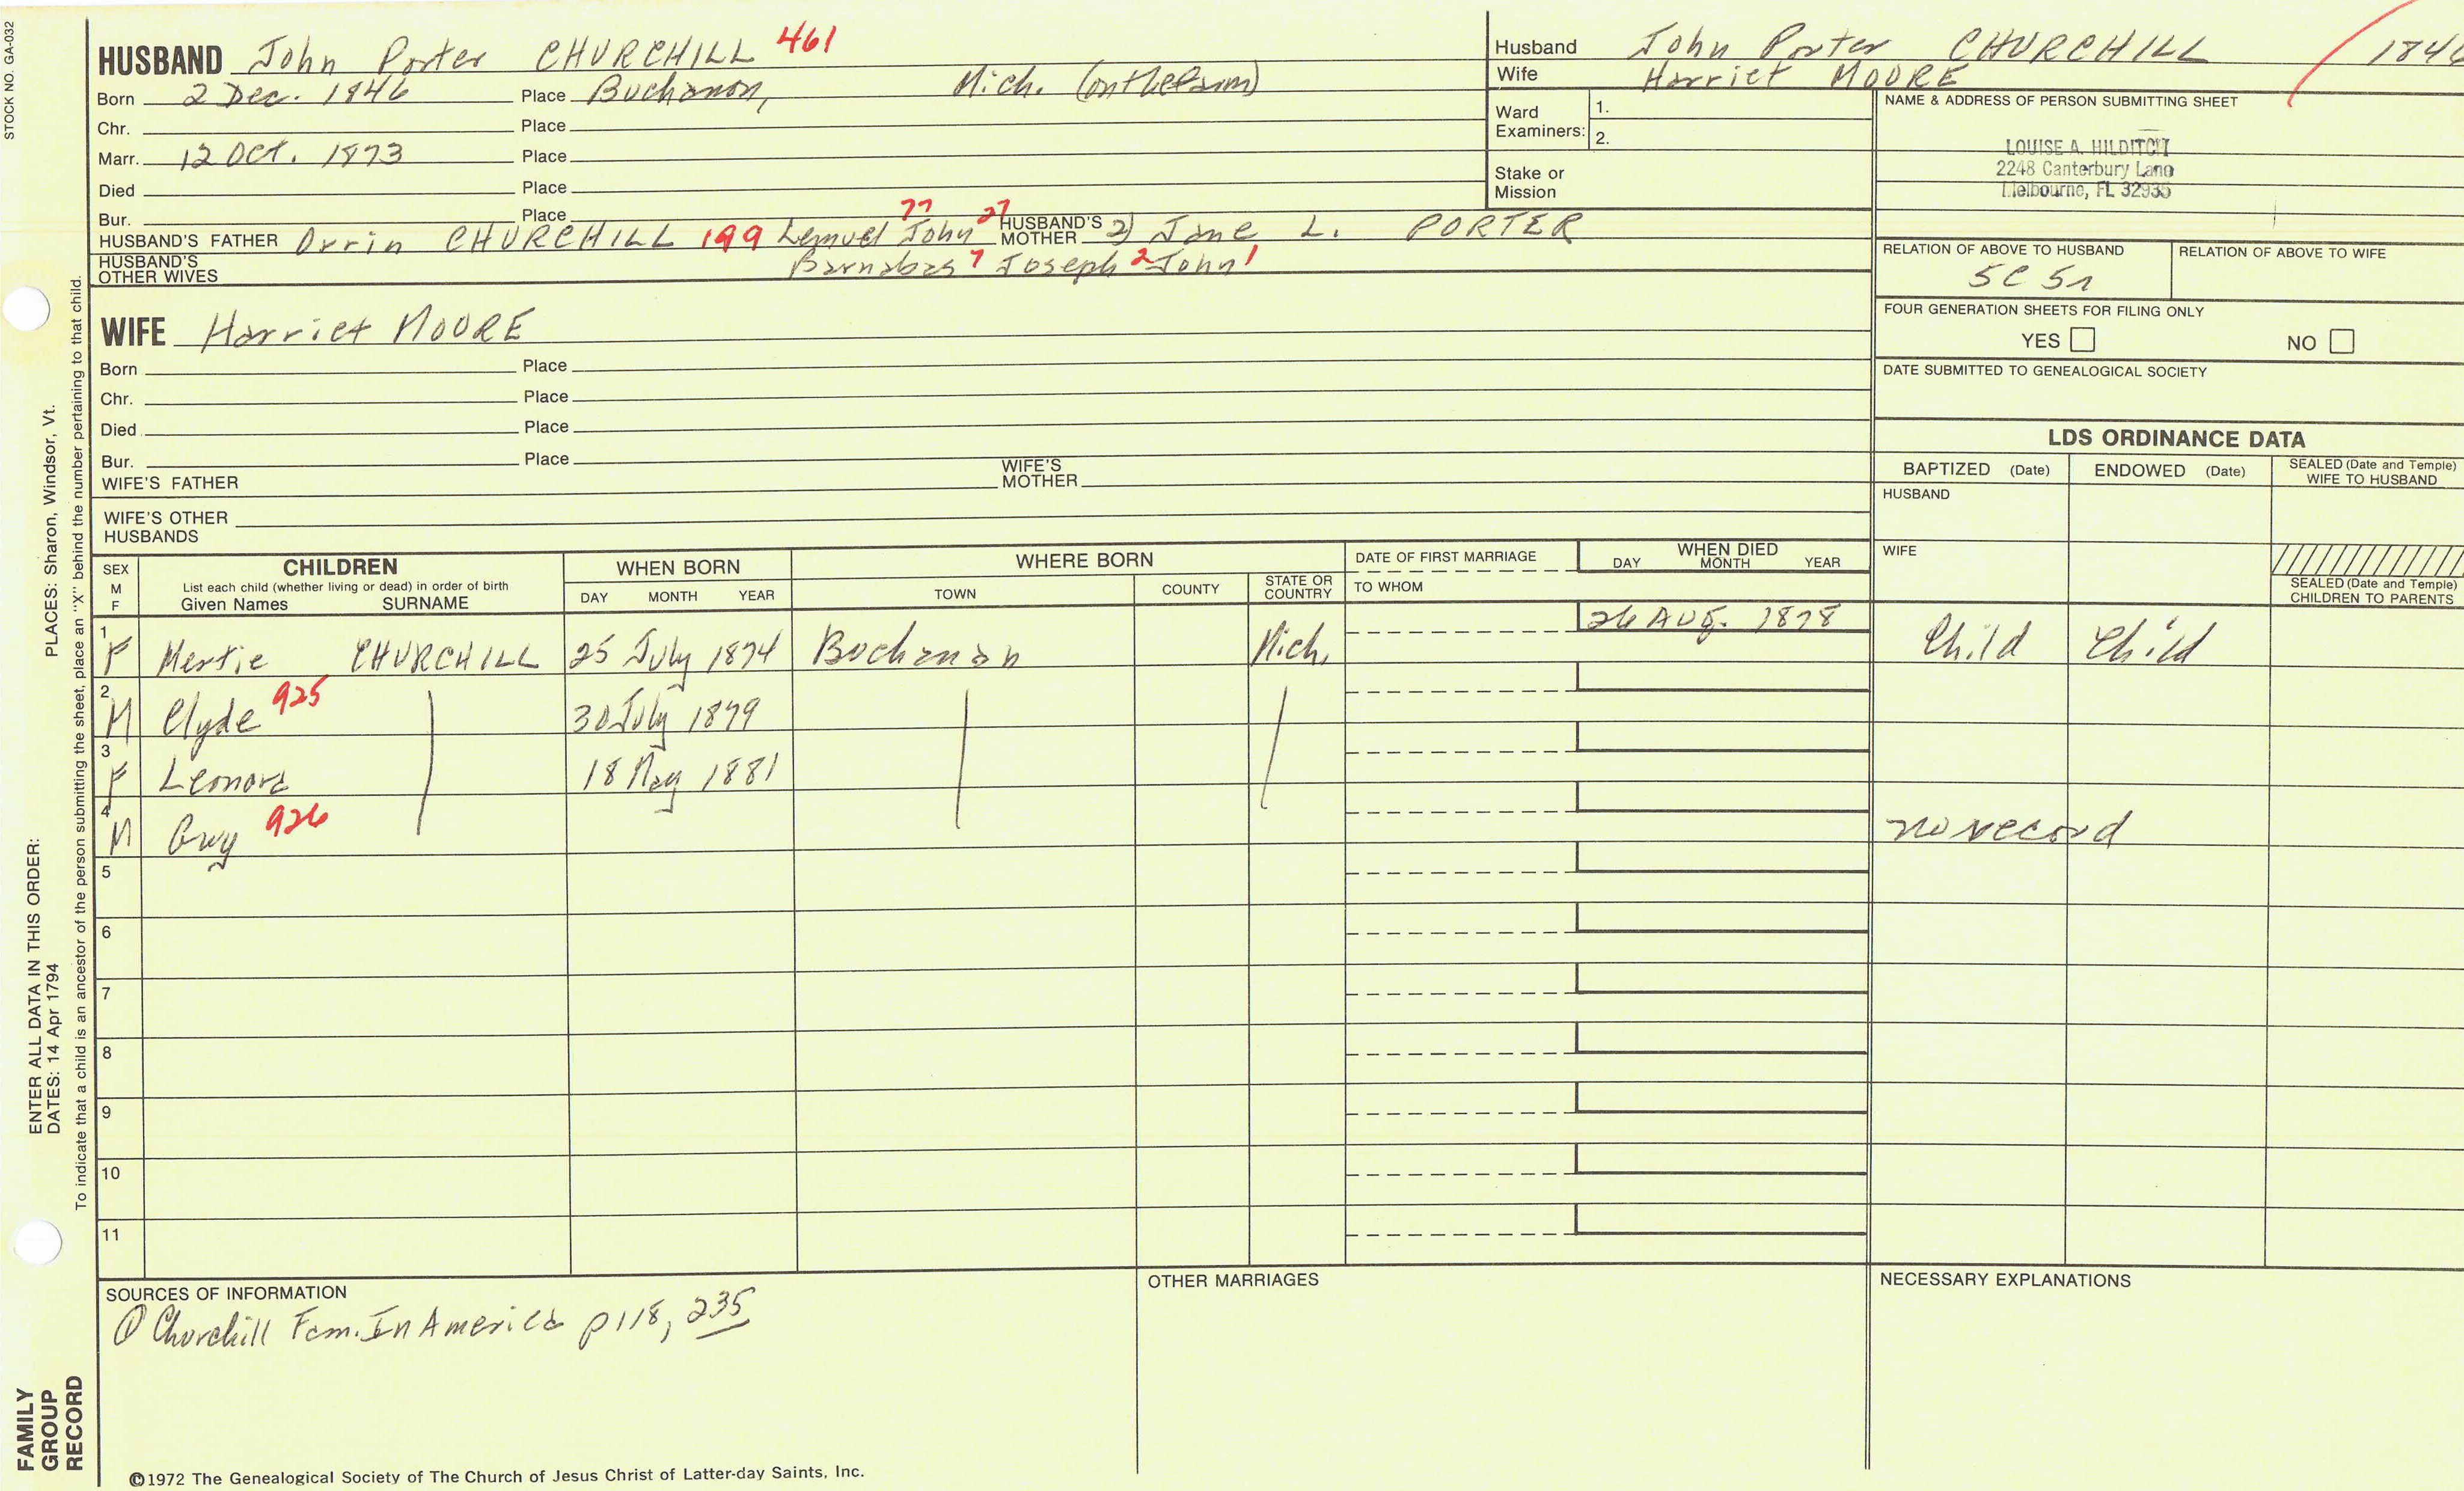 STOCK NO. GA-032
HUSBAND John Porter CHURCHILL 461
Born 2 Dec. 1846 Place Buchanan, Mich. (on the farm)
Chr. Place
Marr. 12 Oct. 1873 Place
Died Place
Bur. Place
HUSBAND'S FATHER Orrin CHURCHILL 199 Lemuel 77 John 27 HUSBAND'S MOTHER 2) Jane L. PORTER
HUSBAND'S OTHER WIVES Barnabas 7 Joseph 2 John 1
Husband John Porter CHURCHILL 1846
Wife Harriet MOORE
Ward Examiners: 1.
2.
Stake or Mission
NAME & ADDRESS OF PERSON SUBMITTING SHEET
LOUISE A. HILDITCH
2248 Canterbury Lane
Melbourne, FL 32935
RELATION OF ABOVE TO HUSBAND RELATION OF ABOVE TO WIFE
5C 5r
FOUR GENERATION SHEETS FOR FILING ONLY
YES NO
DATE SUBMITTED TO GENEALOGICAL SOCIETY
WIFE Harriet MOORE
Born Place
Chr. Place
Died Place
Bur. Place
WIFE'S FATHER WIFE'S MOTHER
WIFE'S OTHER HUSBANDS
LDS ORDINANCE DATA
BAPTIZED (Date) ENDOWED (Date) SEALED (Date and Temple) WIFE TO HUSBAND
HUSBAND
WIFE
SEALED (Date and Temple) CHILDREN TO PARENTS
SEX M F
CHILDREN
List each child (whether living or dead) in order of birth
Given Names SURNAME
WHEN BORN
DAY MONTH YEAR
WHERE BORN
TOWN COUNTY STATE OR COUNTRY
DATE OF FIRST MARRIAGE
TO WHOM
WHEN DIED
DAY MONTH YEAR
1 F Mertie CHURCHILL 25 July 1874 Buchanan Mich. 26 AUG. 1878 Child Child
2 M Clyde 925 30 July 1879
3 F Leonora 18 May 1881
4 M Guy 926 no record
5
6
7
8
9
10
11
SOURCES OF INFORMATION
① Churchill Fam. In America p 118, 235
OTHER MARRIAGES
NECESSARY EXPLANATIONS
©1972 The Genealogical Society of The Church of Jesus Christ of Latter-day Saints, Inc.
ENTER ALL DATA IN THIS ORDER:
DATES: 14 Apr 1794 PLACES: Sharon, Windsor, Vt.
To indicate that a child is an ancestor of the person submitting the sheet, place an "X" behind the number pertaining to that child.
FAMILY
GROUP
RECORD